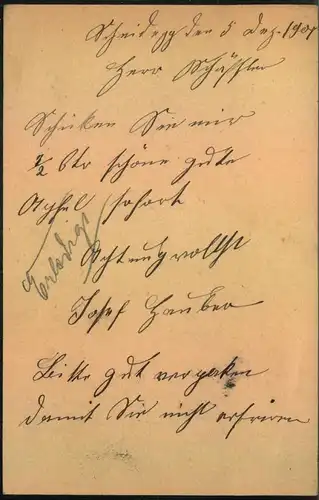 Scheidegg den 5 Dez. 1901
Herr Schäffler
Schiken Sie mir
2/2 Ctr schöne gute
Apfel sofort
Erledigt
Achtungvollst
Josef Hauber
Bitte gut verpaken
damit Sie nicht erfriren